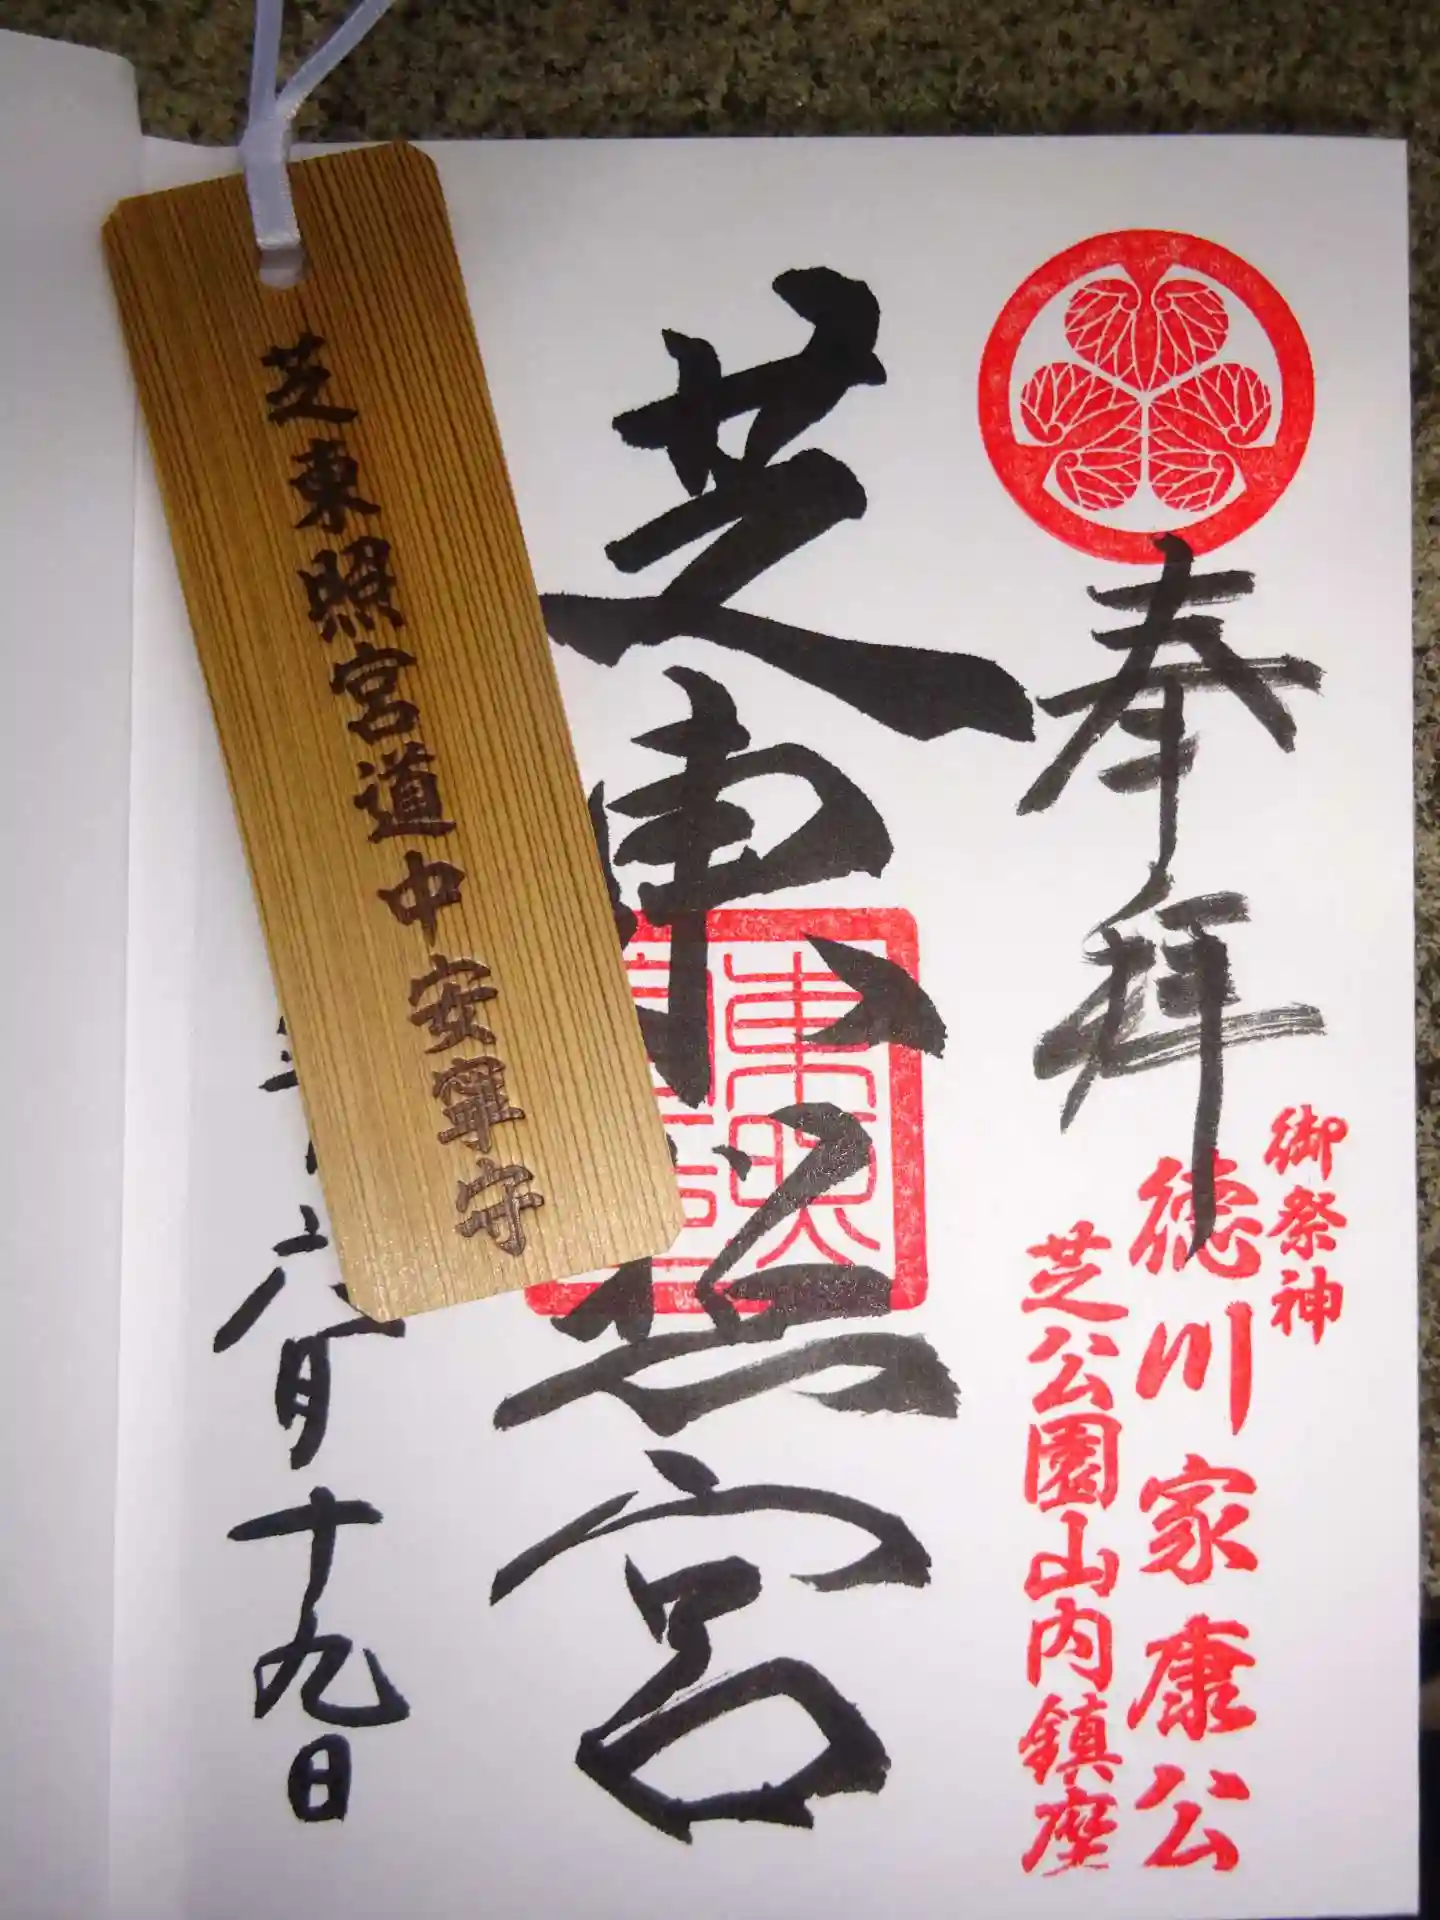 奉拝
御祭神
徳川家康公
芝公園山内鎮座
芝東照宮
東照
六月十九日
芝東照宮道中安寧守